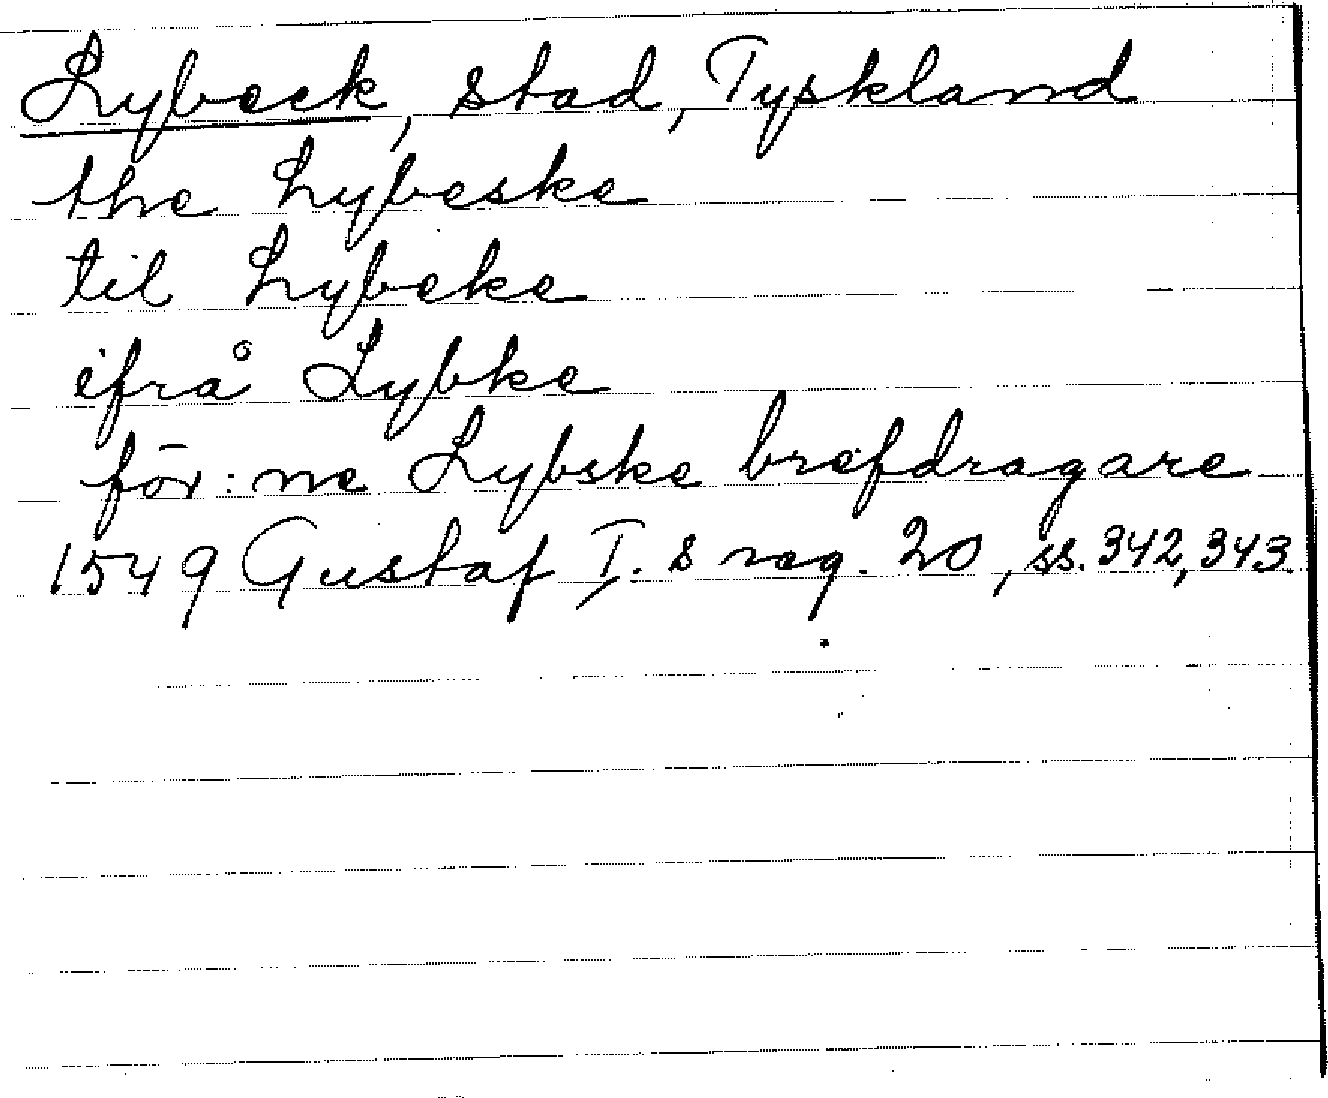 Lybeck, stad, Tyskland
the Lybeske
til Lybeke
ifrå Lybke
för:ne Lybske brefdragare
1549 Gustaf I.s reg. 20, ss. 342, 343.